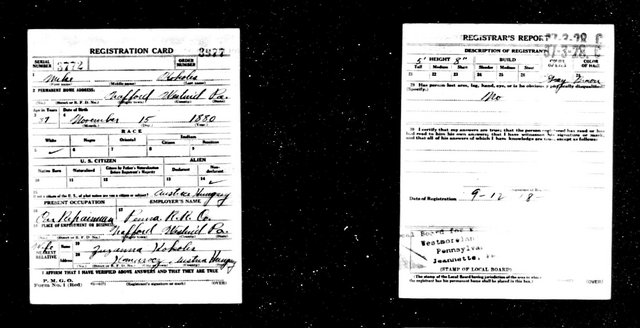 REGISTRATION CARD
SERIAL NUMBER 3772
3977
1 Mike
(First name) (Middle name) (Last name)
2 PERMANENT HOME ADDRESS:
Trafford Pa.
(Street or R. F. D. No.) (City or town) (County) (State)
Age in Years Date of Birth
37 November 15 1880
(Month.) (Day.) (Year.)
RACE
White Negro Oriental Indian
Citizen Noncitizen
U. S. CITIZEN ALIEN
Native Born Naturalized Citizen by Father's Naturalization Before Registrant's Majority Declarant Non-declarant
10 11 12 13 14
If not a citizen of the U. S., of what nation are you a citizen or subject? Austria Hungary
PRESENT OCCUPATION EMPLOYER'S NAME
Car Repairman Penna R. R. Co.
PLACE OF EMPLOYMENT OR BUSINESS:
Trafford Pa.
(Street or R. F. D. No.) (City or town) (County) (State)
NEAREST RELATIVE
Name Zuzanna
Address Austria Hungary
(Street or R. F. D. No.) (City or town) (County) (State)
I AFFIRM THAT I HAVE VERIFIED ABOVE ANSWERS AND THAT THEY ARE TRUE
P. M. G. O.
Form No. 1 (Red) (Registrant's signature or mark) (OVER)
REGISTRAR'S REPORT
37-3-28 C
DESCRIPTION OF REGISTRANT
HEIGHT BUILD COLOR OF EYES COLOR OF HAIR
Tall Medium Short Slender Medium Stout
21 22 23 24 25 26 27 28
5' 8" Gray Brown
29 Has person lost arm, leg, hand, eye, or is he obviously physically disqualified? (Specify.)
No
30 I certify that my answers are true; that the person registered has read or has had read to him his own answers; that I have witnessed his signature or mark, and that all of his answers of which I have knowledge are true, except as follows:
Date of Registration 9-12 18
Local Board for
Westmoreland
Pennsylva
Jeannette,
(STAMP OF LOCAL BOARD)
(The stamp of the Local Board having jurisdiction of the area in which the registrant has his permanent home shall be placed in this box.)
(OVER)